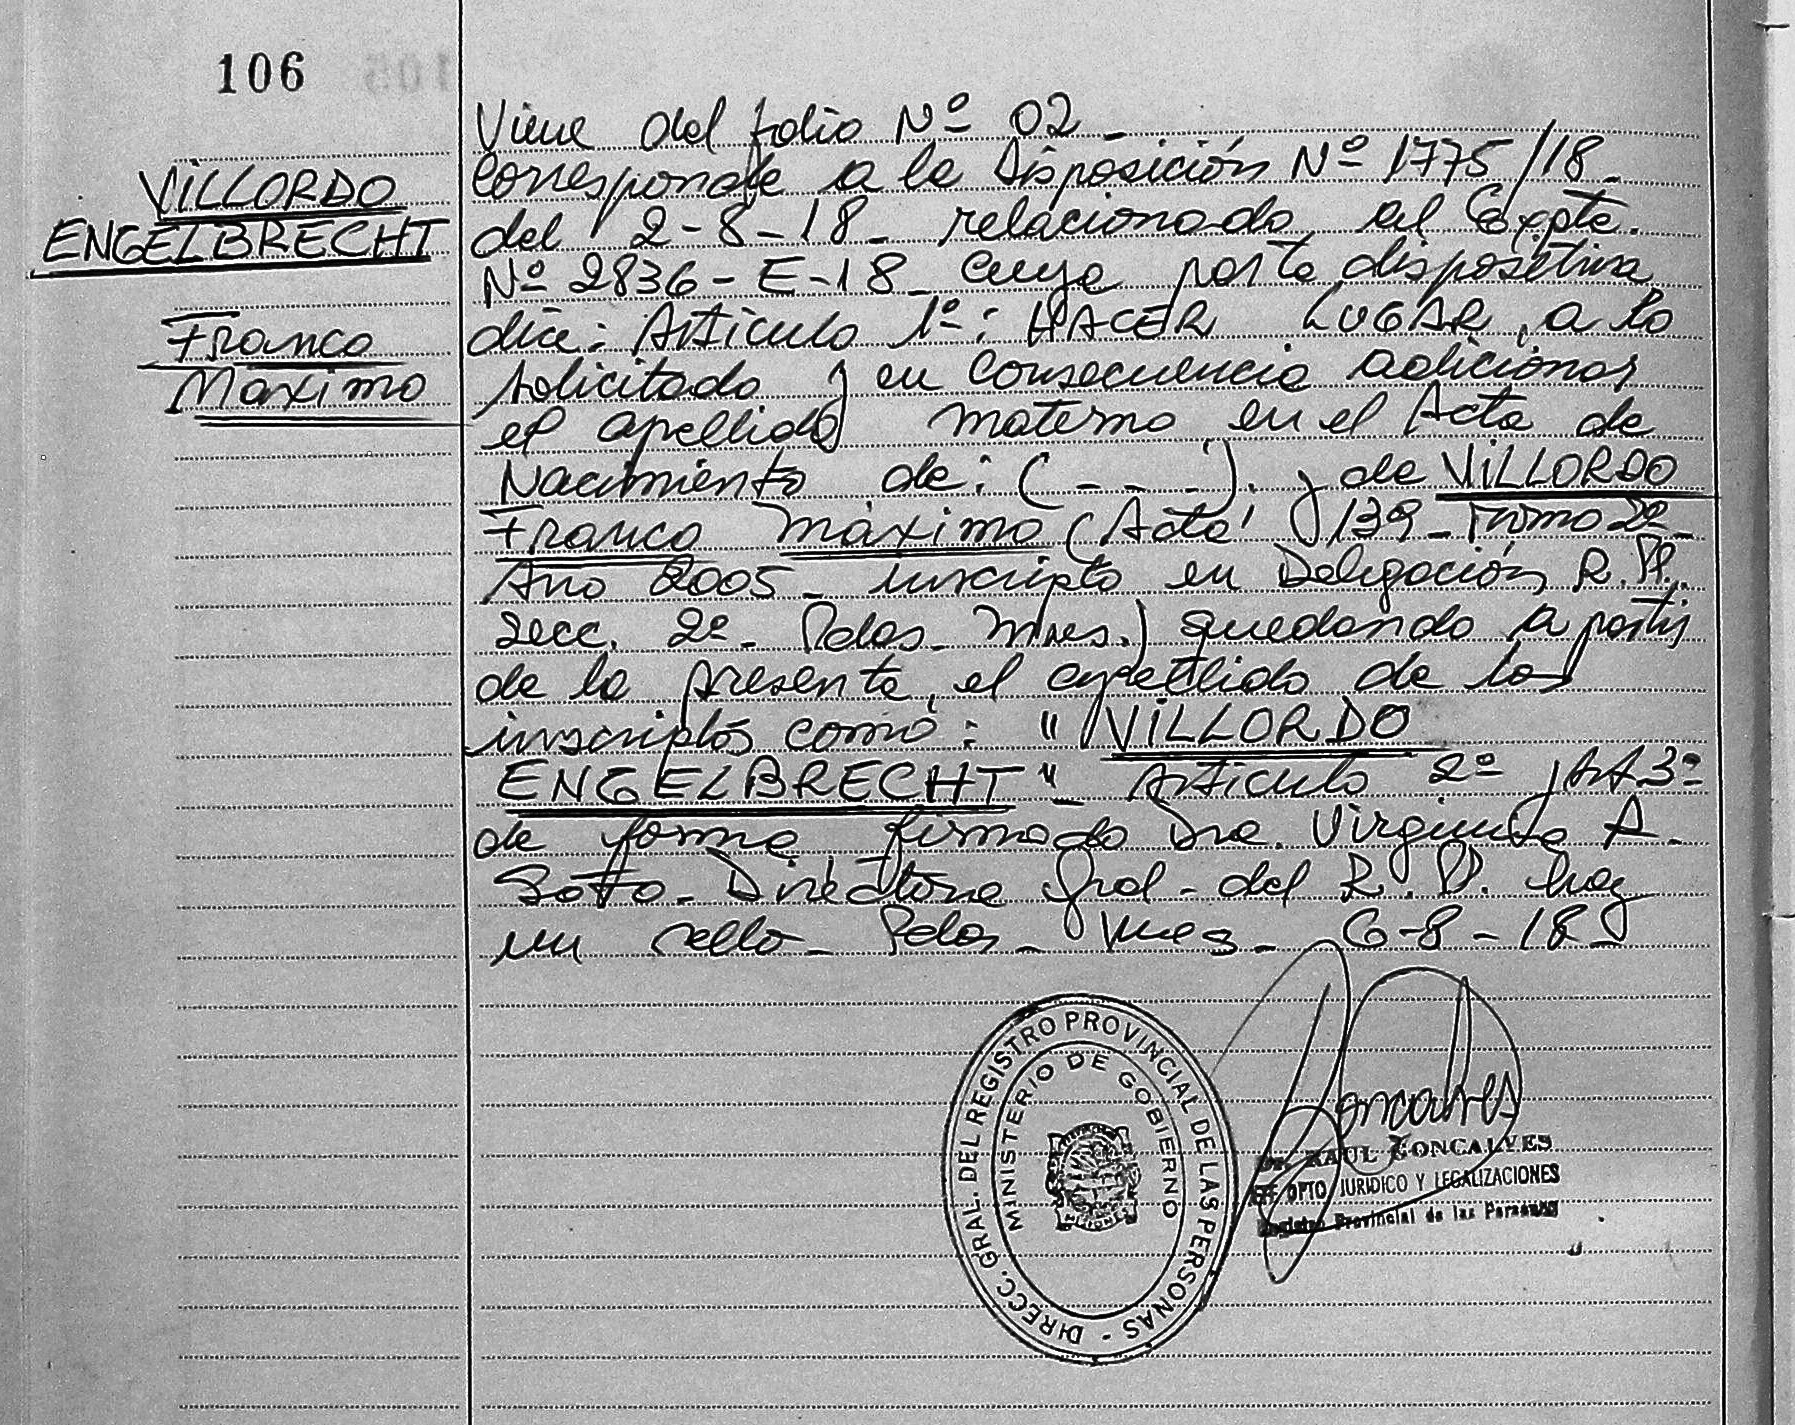 106
VILLORDO
ENGELBRECHT
Franco
Maximo
Viene del folio Nº 02_
Corresponde a la Disposición Nº 1775/18_
del 2-8-18_ relacionado al Expte.
Nº 2836-E-18_ cuya parte dispositiva
dice: Artículo 1º: HACER LUGAR, a lo
solicitado y en consecuencia adicionar
el apellido materno en el Acta de
Nacimiento de: (- - -). y de VILLORDO
Franco Máximo (Acta 139_ Tomo 2º_
Año 2005_ inscripto en Delegación R.P.
Secc. 2º_ Pdas_ Mnes.) quedando a partir
de la presente, el apellido de los
inscriptos como: "VILLORDO
ENGELBRECHT"_ Artículo 2º y Art 3º
de forma firmado Dra. Virginia A.
Sotto_ Directora Gral_ del R.P. hay
un sello_ Pdas_ Mnes_ 6-8-18_
DIRECC. GRAL. DEL REGISTRO PROVINCIAL DE LAS PERSONAS -
MINISTERIO DE GOBIERNO
Goncalves
Dr. RAUL GONCALVES
DPTO. JURIDICO Y LEGALIZACIONES
Registro Provincial de las Personas